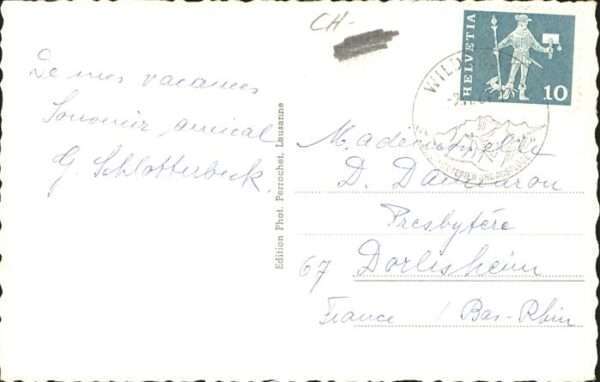 CH-
HELVETIA
10
WILD
De mes vacances
Souvenir amical
G. Schlotterbeck
Edition Phot. Perrochet, Lausanne
Mademoiselle
D.
Presbytére
67 Dorlisheim
France / Bas-Rhin